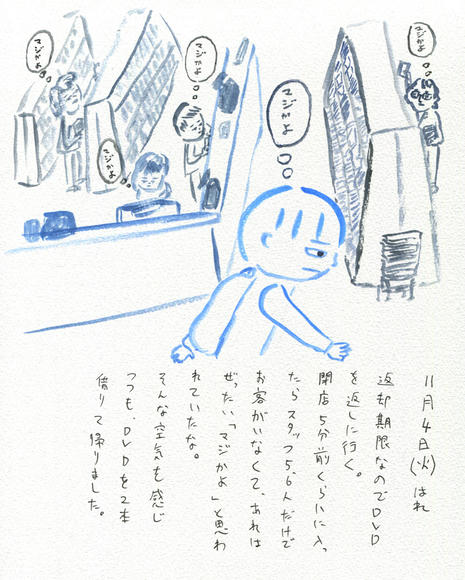 マジかよ
マジかよ
マジかよ
マジかよ
マジかよ
11月4日(火)はれ
返却期限なのでDVD
を返しに行く。
閉店5分前くらいに入っ
たらスタッフ5、6人だけで
お客がいなくて、あれは
ぜったい「マジかよ」と思わ
れていたな。
そんな空気を感じ
つつも、DVDを2本
借りて帰りました。